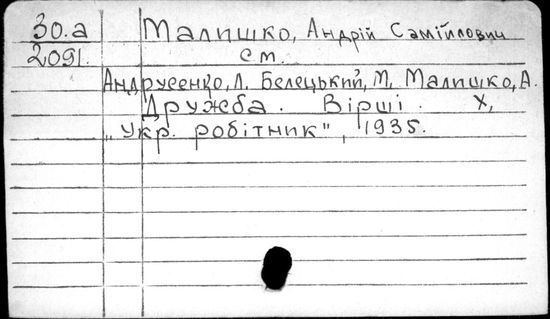 30.а Малишко, Андрій Самійлович
2091. см.
Андрусенко, Л. Белецький, М, Малишко, А.
Дружба. Вірші. Х,
„Укр. робітник", 1935.